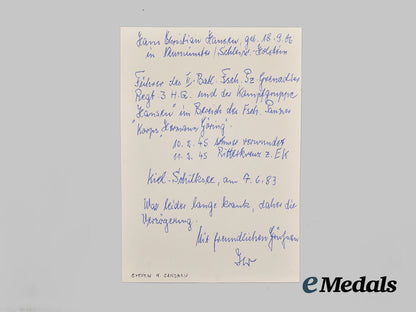 Hans Christian Hansen, geb. 18.9.
in Neumünster/Schlesw. Holstein
Führer des II. Batl. Fsch. Pz Grenadier
Regt 3 H.G. und der Kampfgruppe
"Hansen" im Bereich des Fsch. Panzer
"Korps Hermann Göring"
10.2.45 schwer verwundet
11.2.45 Ritterkreuz z. EK
Kiel-Schilksee, am 7.6.83
War leider lange krank, daher die
Verzögerung.
Mit freundlichen Grüssen
eMedals